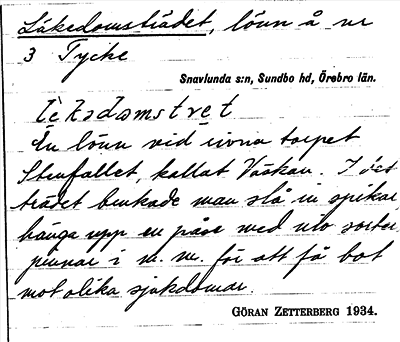 Läkedomsträdet, lönn å nr
3 Tycke
Snavlunda s:n, Sundbo hd, Örebro län.
En lönn vid rivna torpet
Stenfallet, kallat Väskan. I det
trädet brukade man slå in spikar
hänga upp en påse med nio sorter
pinnar i m. m. för att få bot
mot olika sjukdomar.
GÖRAN ZETTERBERG 1934.